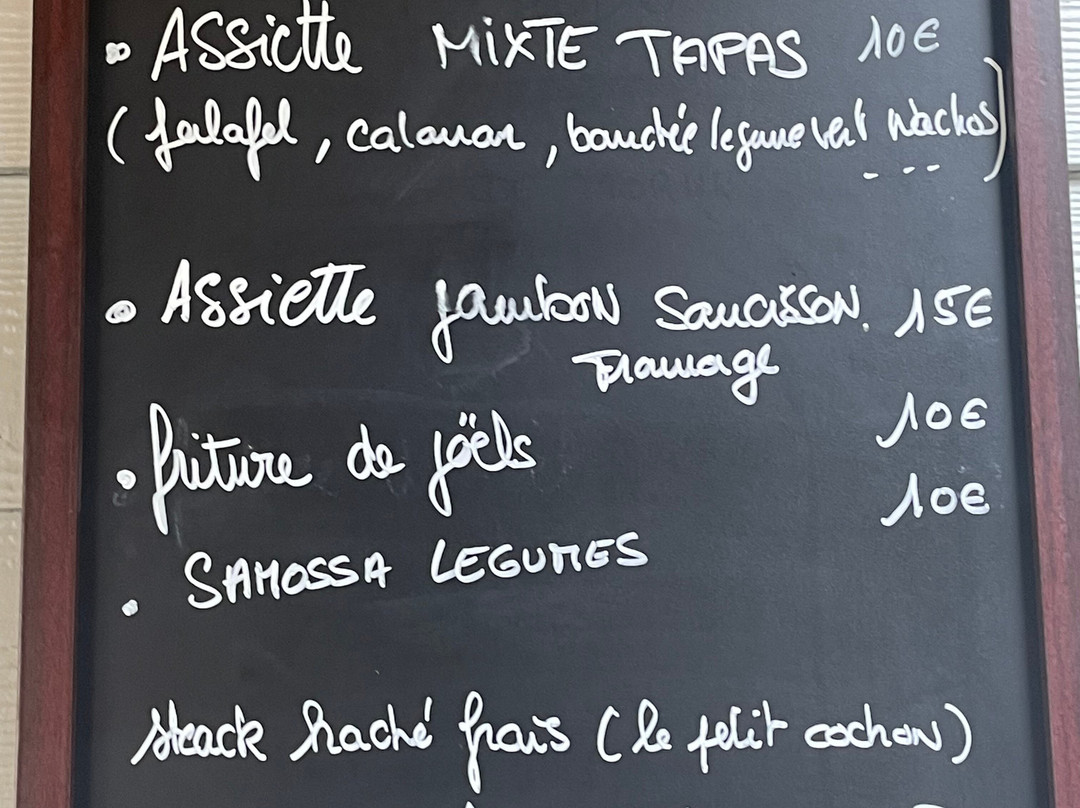 • Assiette MIXTE TAPAS 10€
(falafel, calamar, bouchée legume vert Nachos)
...
• Assiette jambon Saucisson. 15€
Fromage
• friture de joëls 10€
• SAMOSSA LEGUMES 10€
steack haché frais (le petit cochon)